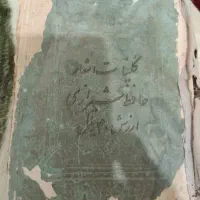 کلیات اشعار
حافظ شیرازی
ارزش